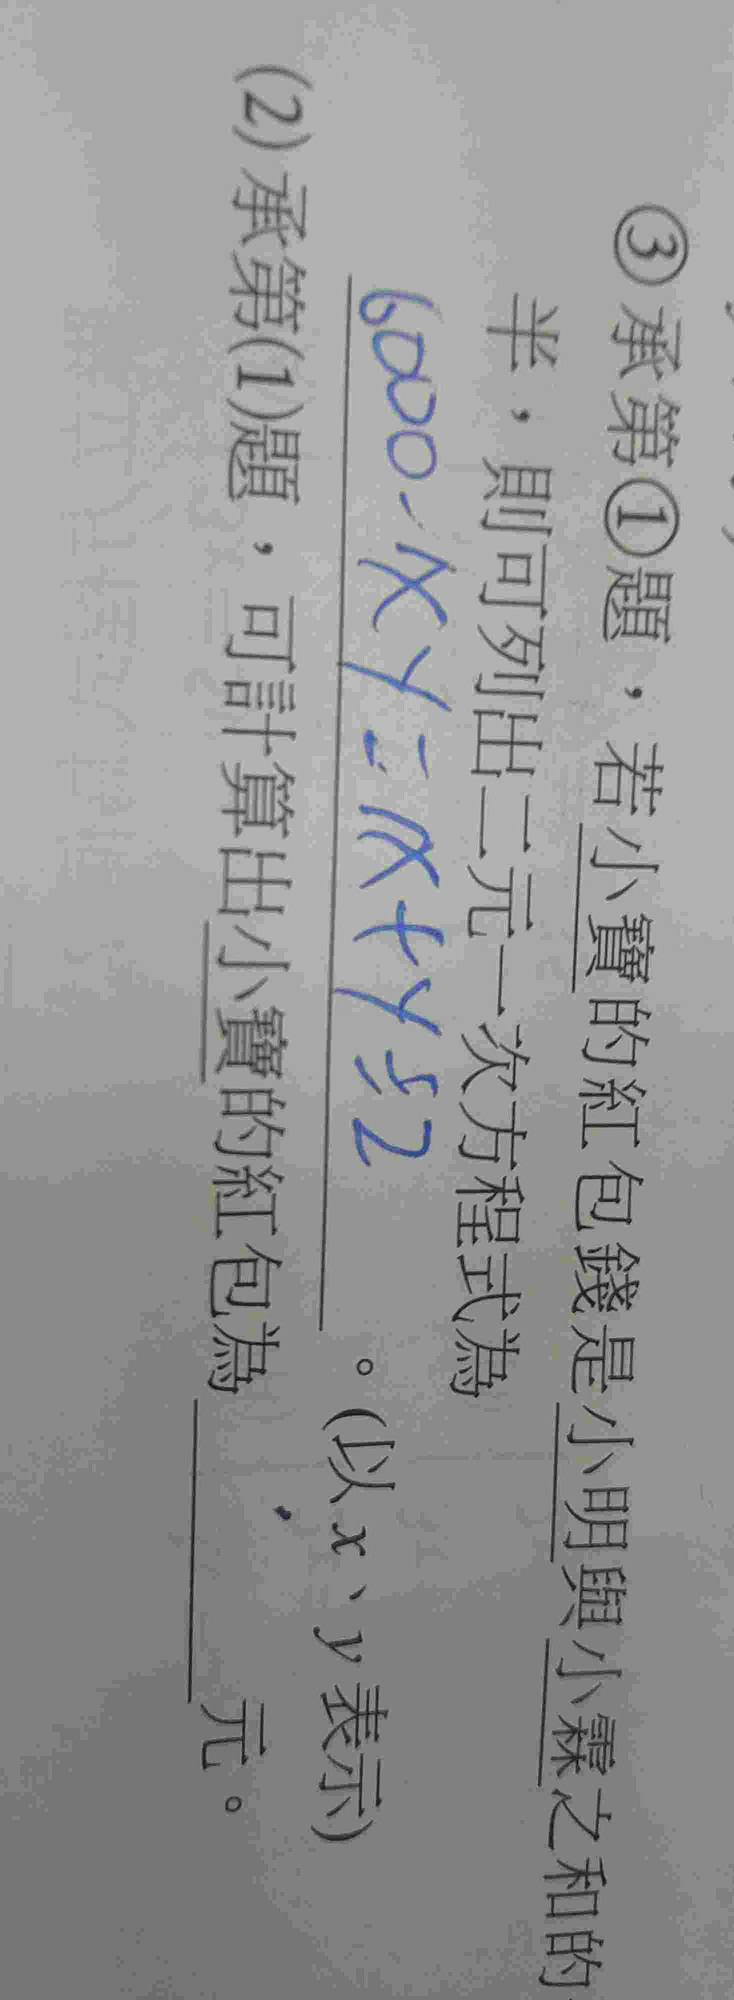 ③承第①題，若小寶的紅包錢是小明與小霖之和的
半，則可列出二元一次方程式為
6000-xy=x+y÷2。(以x、y表示)
(2)承第(1)題，可計算出小寶的紅包為＿＿＿元。